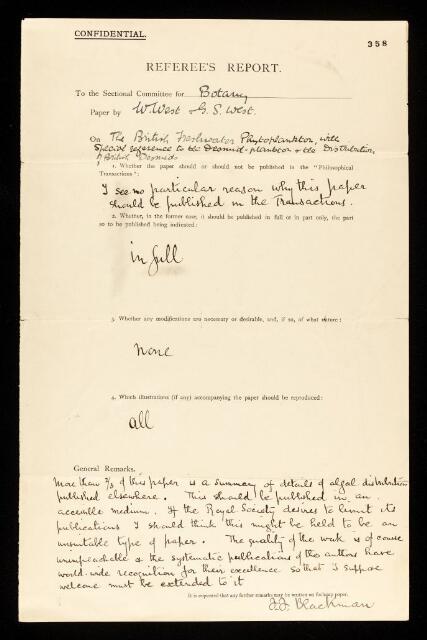 CONFIDENTIAL.
358
REFEREE'S REPORT.
To the Sectional Committee for Botany
Paper by W. West & G. S. West.
On The British Freshwater Phytoplankton, with
Special reference to the Desmid-plankton & the Distribution
of British Desmids
1. Whether the paper should or should not be published in the "Philosophical
Transactions":
I see no particular reason why this paper
should be published in the Transactions.
2. Whether, in the former case, it should be published in full or in part only, the part
so to be published being indicated:
in full
3. Whether any modifications are necessary or desirable, and, if so, of what nature:
None
4. Which illustrations (if any) accompanying the paper should be reproduced:
all
General Remarks.
More than 2/3 of this paper is a summary of details of algal distribution
published elsewhere. This should be published in an
accessible medium. If the Royal Society desires to limit its
publications I should think this might be held to be an
unsuitable type of paper. The quality of the work is of course
unimpeachable & the systematic publications of the authors have
world-wide recognition for their excellence so that I suppose
welcome must be extended to it
It is requested that any further remarks may be written on foolscap paper.
F. F. Blackman